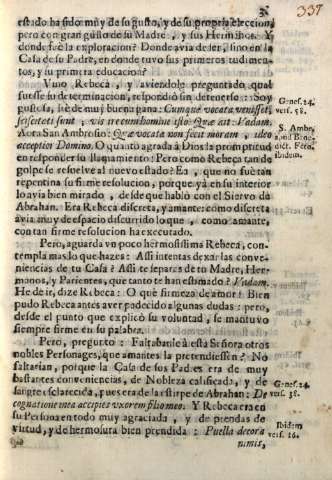 337
estado ha sido muy de su gusto, y de su propria eleccion,
pero con gran gusto de su Madre, y sus Hermanos. Y
donde fuè la exploracion? Donde avia de ser, sino en la
Casa de su Padre, en donde tuvo sus primeros rudimen-
tos, y su primera educacion?
Vino Rebeca, y aviendole preguntado qual
fuesse su determinacion, respondiò sin detenerse: Soy
gustosa, irè de muy buena gana: Cumque vocata venisset,
sciscitati sunt, vis ire cum homine isto? Quæ ait: Vadam.
Aora San Ambrosio: Quæ vocata non fecit moram, ideo
acceptior Domino. O quanto agrada à Dios la promptitud
en responder su llamamiento! Pero como Rebeca tan de
golpe se resuelve al nuevo estado? Ea, que no fuè tan
repentina su firme resolucion, porque yà en su interior
lo avia bien mirado, desde que hablò con el Siervo de
Abrahan. Era Rebeca discreta, y amante: como discreta
avia muy de espacio discurrido lo que, como amante,
con tan firme resolucion ha executado.
Pero, aguarda vn poco hermosissima Rebeca, con-
templa mas lo que hazes: Assi intentas dexar las conve-
niencias de tu Casa? Assi te separas de tu Madre, Her-
monos, y Parientes, que tanto te han estimado? Vadam.
He de ir, dize Rebeca: O què firmeza de amor! Bien
pudo Rebeca antes aver podecido algunas dudas: pero,
desde el punto que explicò su voluntad, se mantuvo
siempre firme en su palabra.
Pero, pregunto: Faltabanle à esta Señora otros
nobles Personages, que amantes la pretendiessen? No
faltarian, porque la Casa de sus Padres era de muy
bastantes conveniencias, de Nobleza calificada, y de
sangre esclarecida, pues era de la estirpe de Abrahan: De
cognatione mea accipies vxorem filio meo. Y Rebeca era en
su Persona en todo muy agraciada, y de prendas de
virtud, y de hermosura bien prendida: Puella decora
nimis,
Genes. 24.
vers. 58.
S. Ambr.
apud Bene-
dict. Fern.
ibidem.
Genes. 24.
vers. 38.
Ibidem
vers. 16.